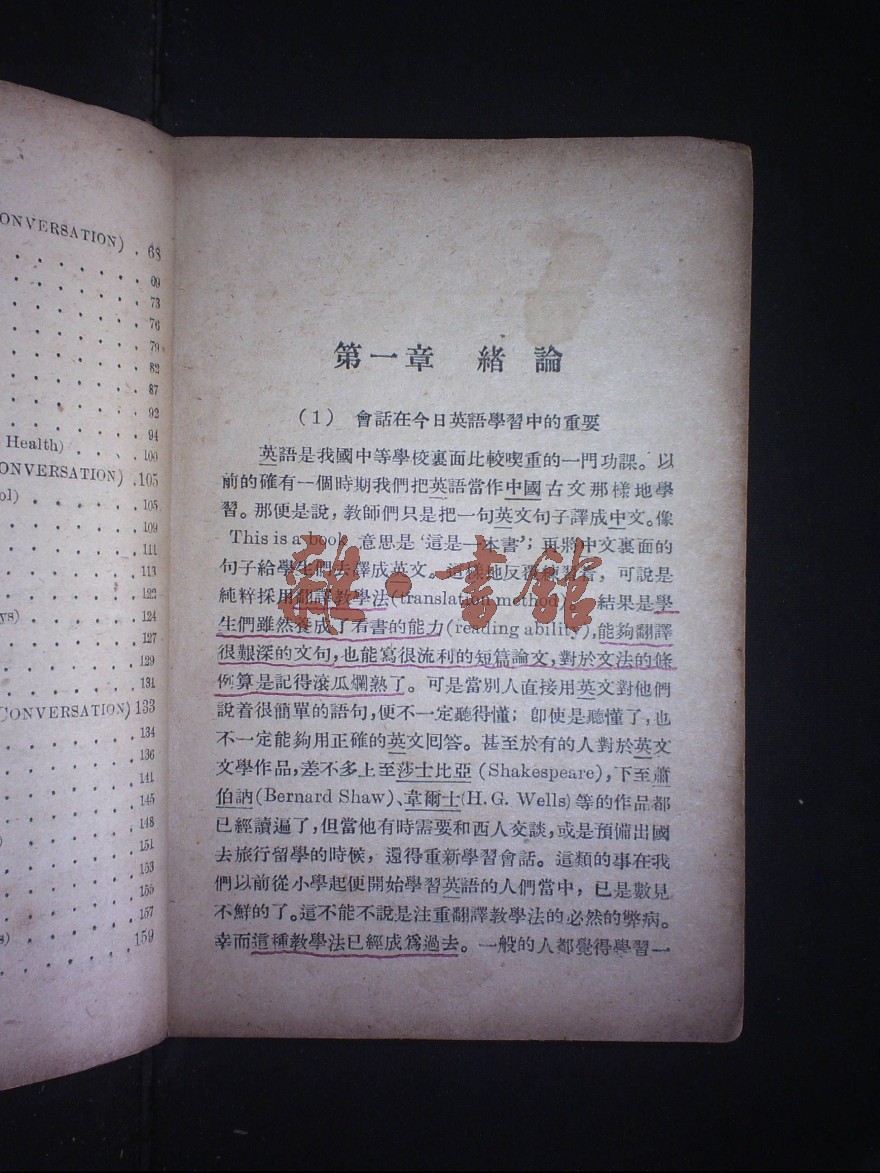 ONVERSATION) . 68
69
73
76
79
82
87
92
94
Health) . 100
ONVERSATION) .105
ol) 105
109
111
113
122
ys) 124
127
129
131
CONVERSATION) 133
134
136
141
145
148
) 151
153
155
157
s) 159
第一章 緒論
(1) 會話在今日英語學習中的重要
英語是我國中等學校裏面比較喫重的一門功課。以
前的確有一個時期我們把英語當作中國古文那樣地學
習。那便是說,教師們只是把一句英文句子譯成中文。像
This is a book 意思是‘這是一本書’; 再將中文裏面的
句子給學生們去譯成英文。這樣地反覆練習着,可說是
純粹採用翻譯教學法(translation method)。結果是學
生們雖然養成了看書的能力(reading ability),能夠翻譯
很艱深的文句,也能寫很流利的短篇論文,對於文法的條
例算是記得滾瓜爛熟了。可是當別人直接用英文對他們
說着很簡單的語句,便不一定聽得懂; 卽使是聽懂了,也
不一定能夠用正確的英文回答。甚至於有的人對於英文
文學作品,差不多上至莎士比亞 (Shakespeare),下至蕭
伯訥(Bernard Shaw)、韋爾士(H. G. Wells)等的作品都
已經讀遍了,但當他有時需要和西人交談,或是預備出國
去旅行留學的時候,還得重新學習會話。這類的事在我
們以前從小學起便開始學習英語的人們當中,已是數見
不鮮的了。這不能不說是注重翻譯教學法的必然的弊病。
幸而這種教學法已經成爲過去。一般的人都覺得學習一
雜·書館